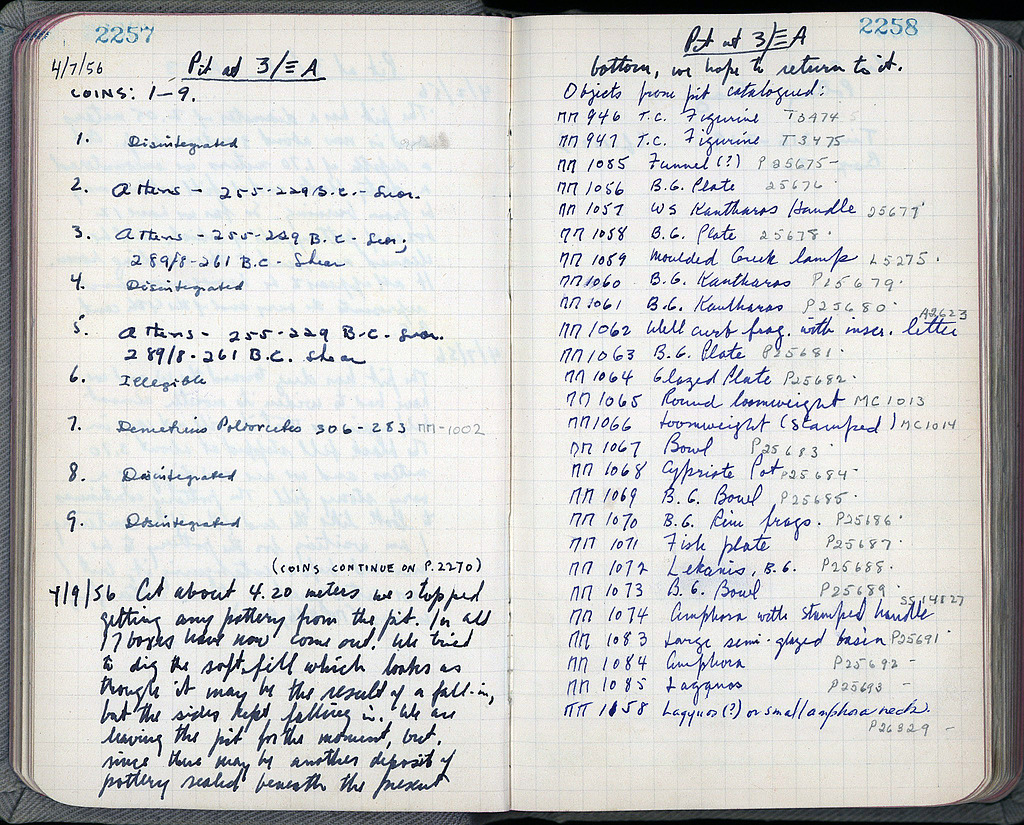 2257
4/7/56 Pit at 3/ΞA
COINS: 1-9.
1. Disintegrated
2. Athens - 255-229 B.C. - Svor.
3. Athens - 255-229 B.C. - Svor;
289/8-261 B.C. - Shear
4. Disintegrated
5. Athens - 255-229 B.C. - Svor.
289/8-261 B.C. Shear
6. Illegible
7. Demetrius Poliorcetes 306-283 ΠΠ-1002
8. Disintegrated
9. Disintegrated
(COINS CONTINUE ON P. 2270)
4/9/56 At about 4.20 meters we stopped
getting any pottery from the pit. In all
17 boxes have now come out. We tried
to dig the soft fill which looks as
though it may be the result of a fall-in,
but the sides kept falling in. We are
leaving the pit for the moment, but,
since there may be another deposit of
pottery sealed beneath the present
2258
Pit at 3/ΞA
bottom, we hope to return to it.
Objects from pit catalogued:
ΠΠ 946 T.C. Figurine T3474
ΠΠ 947 T.C. Figurine T3475
ΠΠ 1055 Funnel (?) P25675
ΠΠ 1056 B.G. Plate 25676
ΠΠ 1057 WS Kantharos Handle 25677
ΠΠ 1058 B.G. Plate 25678
ΠΠ 1059 Moulded Greek lamp L5275
ΠΠ 1060 B.G. Kantharos P25679
ΠΠ 1061 B.G. Kantharos P25680
A2623
ΠΠ 1062 Well curb frag. with inscr. letter
ΠΠ 1063 B.G. Plate P25681
ΠΠ 1064 Glazed Plate P25682
ΠΠ 1065 Round loomweight MC1013
ΠΠ 1066 Loomweight (Stamped) MC1014
ΠΠ 1067 Bowl P25683
ΠΠ 1068 Cypriote Pot P25684
ΠΠ 1069 B.G. Bowl P25685
ΠΠ 1070 B.G. Rim frags. P25686
ΠΠ 1071 Fish plate P25687
ΠΠ 1072 Lekanis, B.G. P25688
ΠΠ 1073 B.G. Bowl P25689
SS14127
ΠΠ 1074 Amphora with stamped handle
ΠΠ 1083 Large semi-glazed basin P25691
ΠΠ 1084 Amphora P25692
ΠΠ 1085 Lagynos P25693
ΠΠ 1158 Lagynos (?) or small amphora neck.
P26329